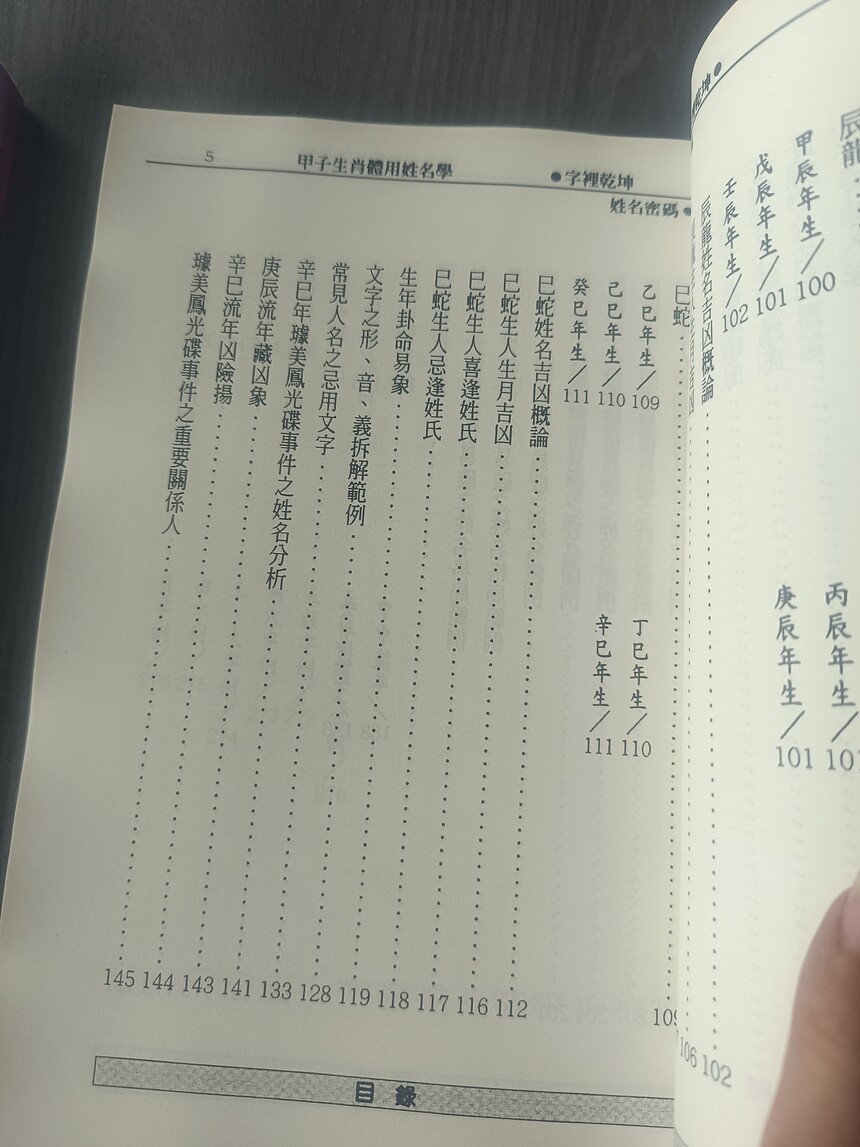 乾坤●
辰龍
甲辰年生／100
丙辰年生／101
戊辰年生／101
庚辰年生／101
壬辰年生／102
辰龍姓名吉凶概論……102
106
●字裡乾坤
姓名密碼●
甲子生肖體用姓名學
5
巳蛇……109
乙巳年生／109
丁巳年生／110
己巳年生／110
辛巳年生／111
癸巳年生／111
巳蛇姓名吉凶概論……112
巳蛇生人生月吉凶……116
巳蛇生人喜逢姓氏……117
巳蛇生人忌逢姓氏……118
生年卦命易象……119
文字之形、音、義拆解範例……128
常見人名之忌用文字……133
辛巳年璩美鳳光碟事件之姓名分析……141
庚辰流年藏凶象……143
辛巳流年凶險揚……144
璩美鳳光碟事件之重要關係人……145
目錄